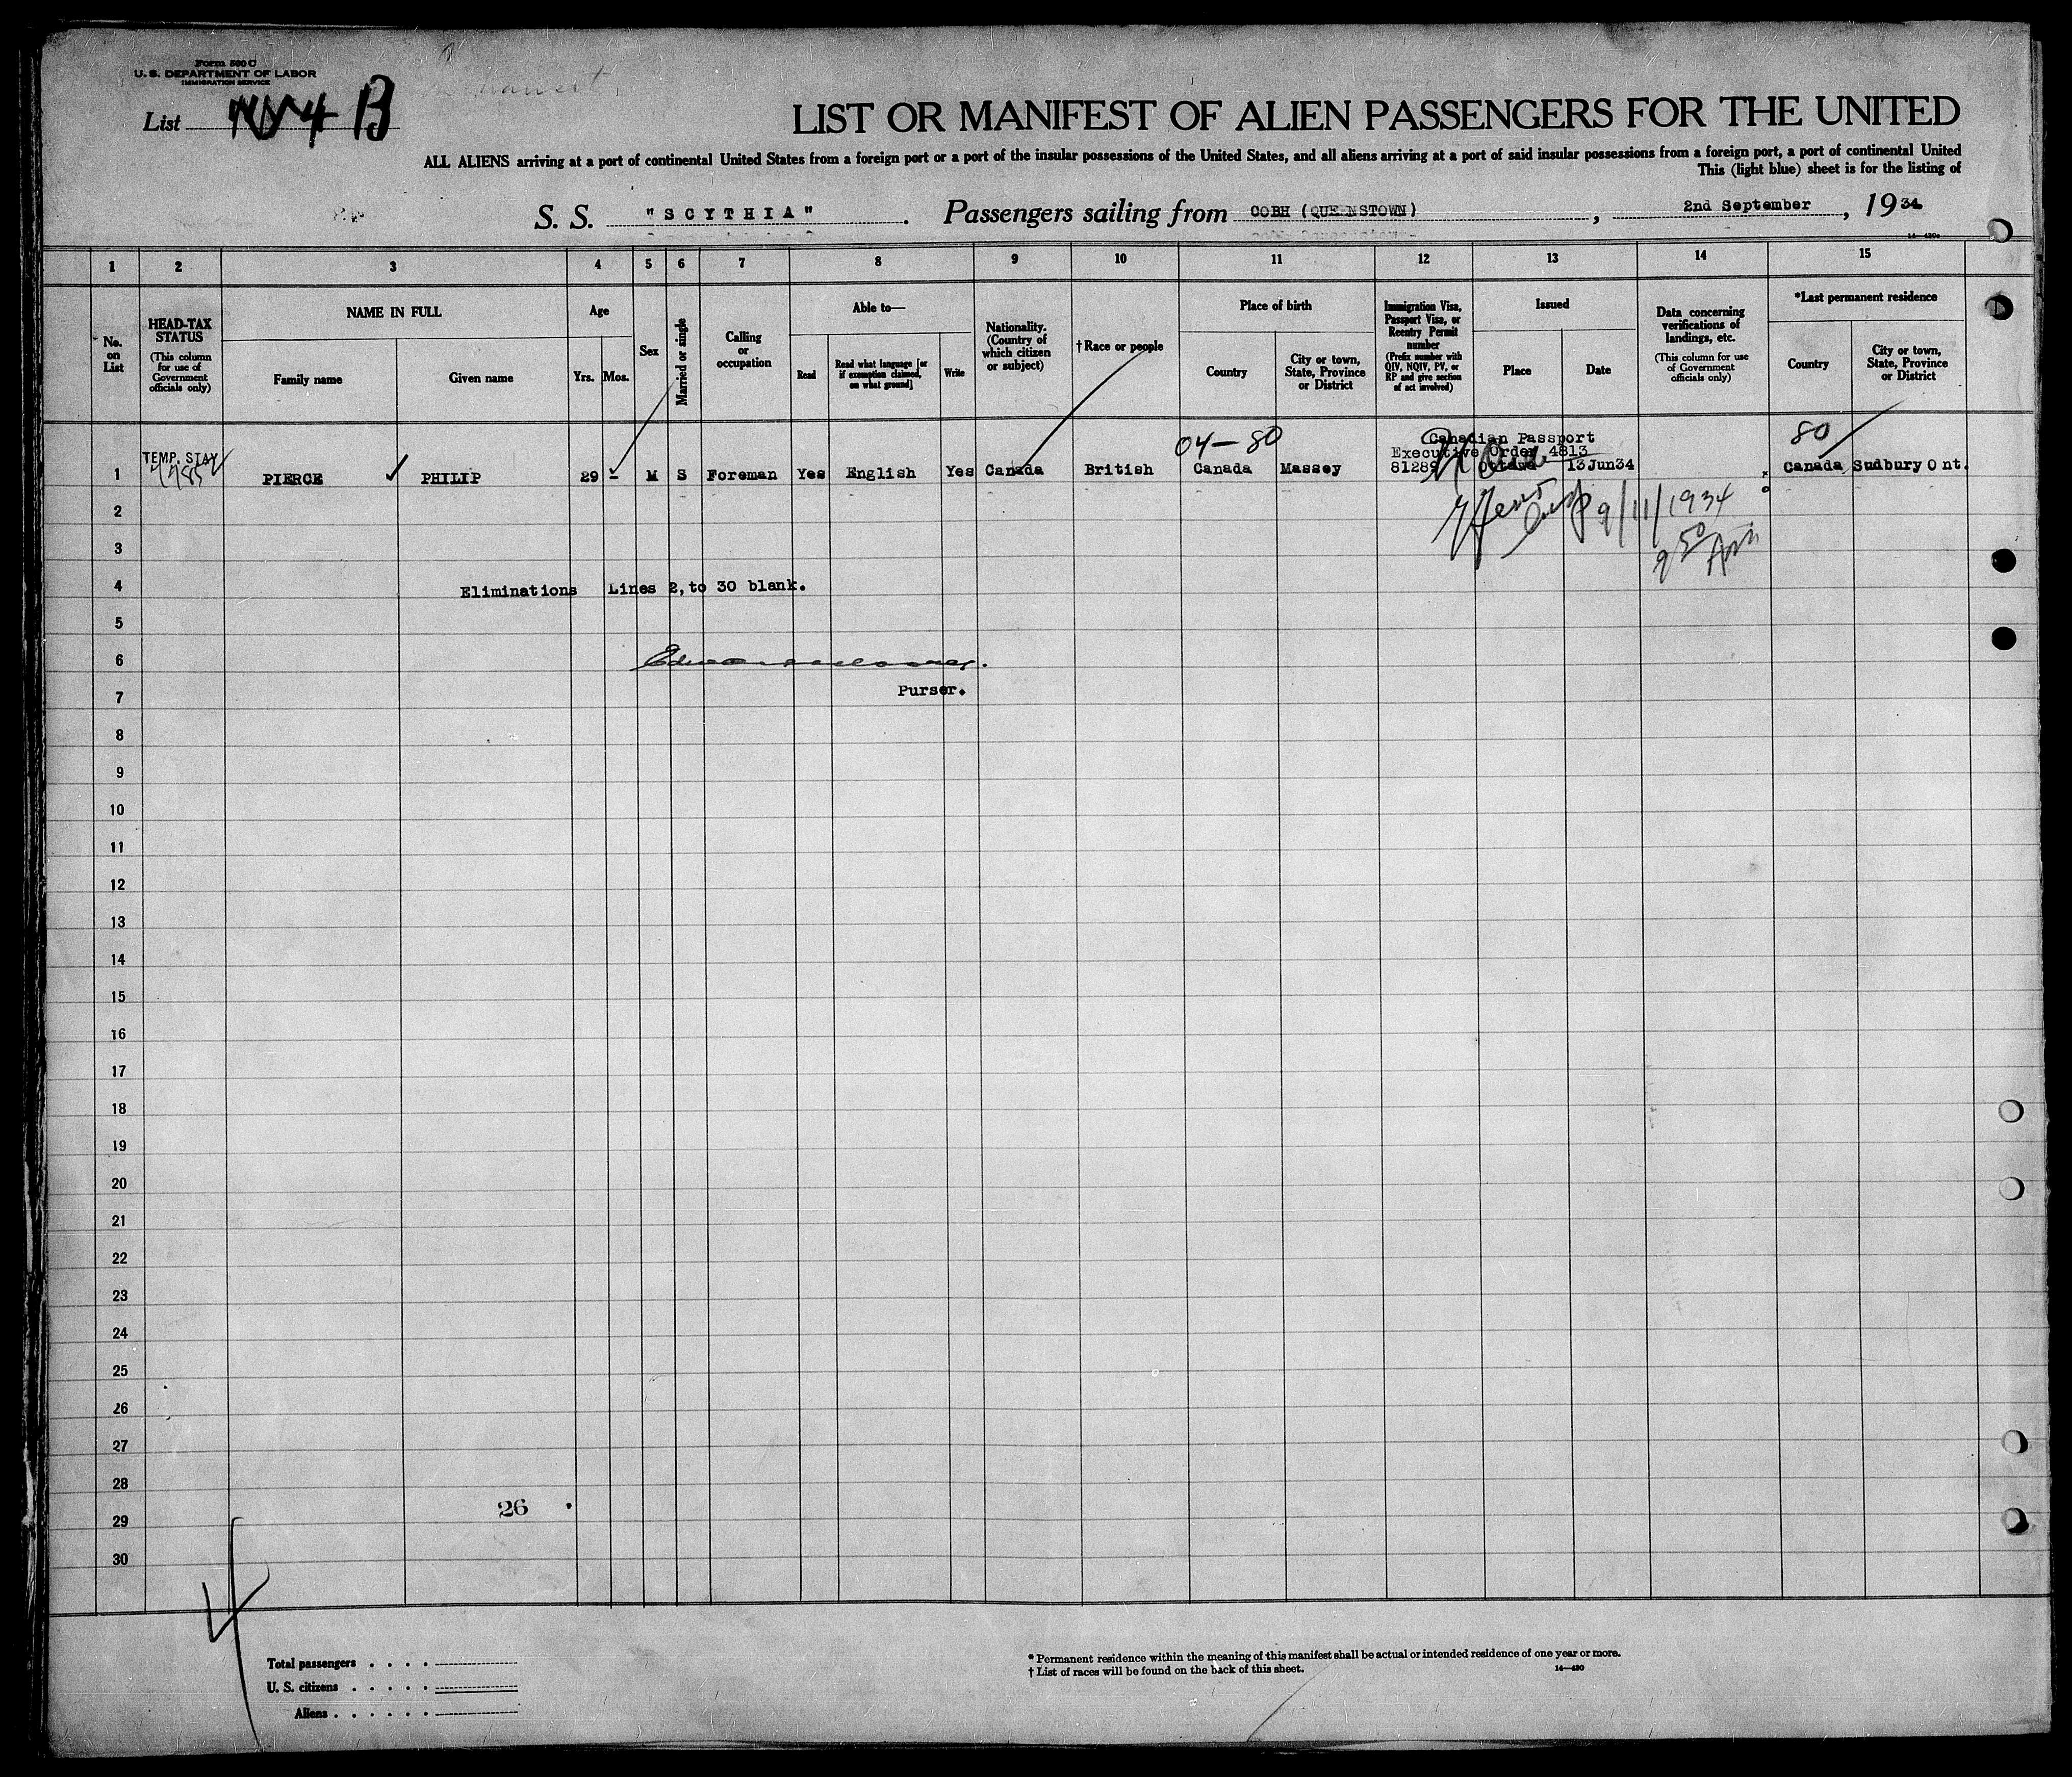 Form 500 C
U. S. DEPARTMENT OF LABOR
IMMIGRATION SERVICE
List 4 B
LIST OR MANIFEST OF ALIEN PASSENGERS FOR THE UNITED
ALL ALIENS arriving at a port of continental United States from a foreign port or a port of the insular possessions of the United States, and all aliens arriving at a port of said insular possessions from a foreign port, a port of continental United
This (light blue) sheet is for the listing of
S. S. "SCYTHIA". Passengers sailing from COBH (QUEENSTOWN), 2nd September, 1934
14—430a
1 2 3 4 5 6 7 8 9 10 11 12 13 14 15
No. on List
HEAD-TAX STATUS
(This column for use of Government officials only)
NAME IN FULL
Family name
Given name
Age
Yrs. Mos.
Sex
Married or single
Calling or occupation
Able to—
Read
Read what language [or if exemption claimed, on what ground]
Write
Nationality. (Country of which citizen or subject)
†Race or people
Place of birth
Country
City or town, State, Province or District
Immigration Visa, Passport Visa, or Reentry Permit number
(Prefix number with QIV, NQIV, PV, or RP and give section of act involved)
Issued
Place
Date
Data concerning verifications of landings, etc.
(This column for use of Government officials only)
*Last permanent residence
Country
City or town, State, Province or District
04—80
80
Canadian Passport
Executive Order 4813
TEMP. STAY
1 PIERCE PHILIP 29 - M S Foreman Yes English Yes Canada British Canada Massey 81289 Ottawa 13Jun34 Canada Sudbury Ont.
2
9/11/1934
3
9 50 AM
4 Eliminations Lines 2, to 30 blank.
5
6
7 Purser.
8
9
10
11
12
13
14
15
16
17
18
19
20
21
22
23
24
25
26
27
28
26
29
30
4
Total passengers . . . .
U. S. citizens . . . . .
Aliens . . . . . .
* Permanent residence within the meaning of this manifest shall be actual or intended residence of one year or more.
† List of races will be found on the back of this sheet.
14—430